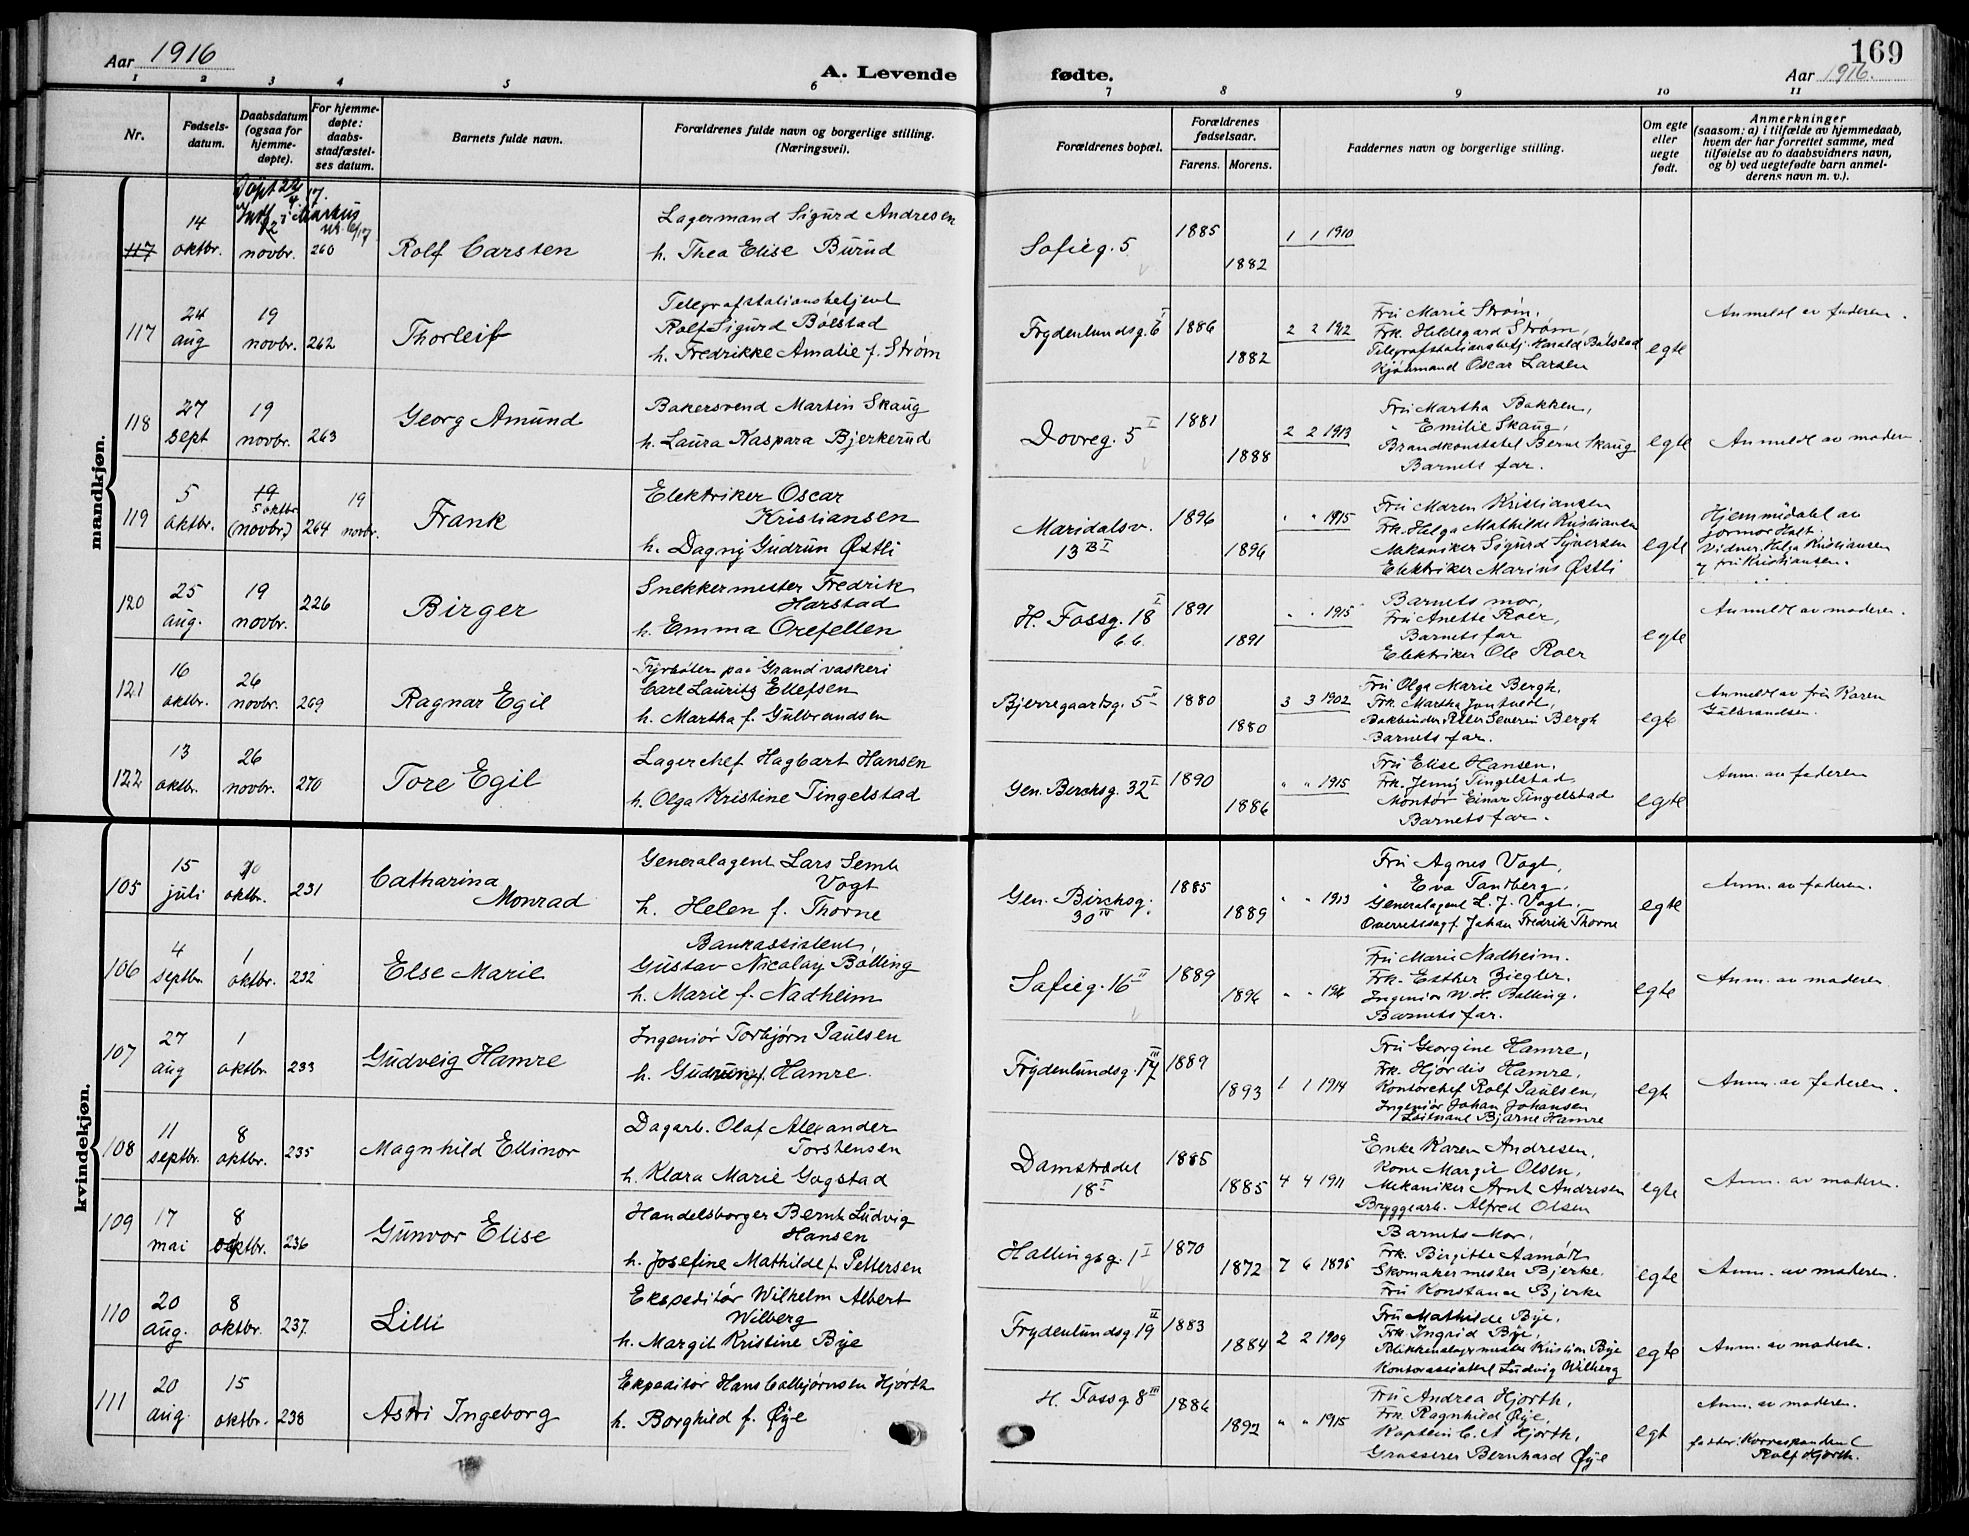 Aar 1916
A. Levende fødte.
169
Aar 1916.
1 2 3 4 5 6 7 8 9 10 11
Nr.
Fødsels-
datum.
Daabsdatum
(ogsaa for
hjemme-
døpte).
For hjemme-
døpte:
daabs-
stadfæstel-
ses datum.
Barnets fulde navn.
Forældrenes fulde navn og borgerlige stilling.
(Næringsvei).
Forældrenes bopæl.
Forældrenes
fødselsaar.
Farens. Morens.
Faddernes navn og borgerlige stilling.
Om egte
eller
uegte
født.
Anmerkninger
(saasom: a) i tilfælde av hjemmedaab,
hvem der har forrettet samme, med
tilføielse av to daabsvidners navn,
og b) ved uegtefødte barn anmel-
derens navn m. v.).
mandkjøn.
Døpt 22/4 17.
Indf. i Markus
nr. 6/17
117 14 oktbr. 12 novbr. 260 Rolf Carsten
Lagermand Sigurd Andresen
h. Thea Elise Burud
Sofieg. 5 1885 1882 1 1 1910
117 24 aug 19 novbr. 262 Thorleif
Telegrafstationsbetjent
Rolf Sigurd Bølstad
h. Fredrikke Amalie f. Strøm
Frydenlundsg. 6 I 1886 1882 2 2 1912
Fru Marie Strøm,
Frk. Hildegard Strøm,
Telegrafstationsbetj. Harald Bølstad
Kjøbmand Oscar Larsen
egte
Anmeldt av faderen.
118 27 sept 19 novbr. 263 Georg Amund
Bakersvend Martin Skaug
h. Laura Kaspara Bjerkerud
Dovreg. 5 I 1881 1888 2 2 1913
Fru Martha Bakken,
" Emilie Skaug,
Brandkonstabel Bernt Skaug
Barnets far.
egte
Anmeldt av moderen
119 5 oktbr. 19 5 oktbr (novbr.) 264 19 novbr. Frank
Elektriker Oscar
Kristiansen
h. Dagny Gudrun Østli
Maridalsv.
13 B I
1896 1896 " " 1915
Fru Maren Kristiansen
Frk. Helga Mathilde Kristiansen
Mekaniker Sigurd Syversen
Elektriker Marius Østli
egte
Hjemmedøbt av
Jormor Holt.
Vidner: Helga Kristiansen
og fru Kristiansen.
120 25 aug. 19 novbr. 226 Birger
Snekkermester Fredrik
Harstad
h. Emma Orefellen
H. Fossg. 18 I
b.b.
1891 1891 " " 1915
Barnets mor,
Fru Anette Roer,
Barnets far
Elektriker Ole Roer
egte
Anmeldt av moderen.
121 16 oktbr. 26 novbr. 269 Ragnar Egil
Fyrbøter paa Grand vaskeri
Carl Lauritz Ellefsen
h. Martha f. Gulbrandsen
Bjerregaardsg. 5 II 1880 1880 3 3 1902
Fru Olga Marie Bergh,
Frk. Martha Jontvedt,
Bokbinder Peter Severin Bergh
Barnets far.
egte
Anmeldt av fru Karen
Gulbrandsen.
122 13 oktbr. 26 novbr. 270 Tore Egil
Lagerchef Hagbart Hansen
h. Olga Kristine Tingelstad
Gen. Birchsg. 32 I 1890 1886 " " 1915
Fru Elise Hansen,
Frk. Jenny Tingelstad
Montør Einar Tingelstad
Barnets far.
egte
Anm. av faderen
kvindekjøn.
105 15 juli oktbr. 231 Catharina
Monrad
Generalagent Lars Semb
Vogt
h. Helen f. Thorne
Gen. Birchsg.
30 IV
1885 1889 " " 1913
Fru Agnes Vogt,
" Eva Tandberg,
Generalagent L. J. Vogt,
Overretssagf. Johan Fredrik Thorne
egte
Anm. av faderen.
106 4 septbr. 1 oktbr. 232 Else Marie
Bankassistent
Gustav Nicolay Bølling
h. Marie f. Nadheim
Sofieg. 16 II 1889 1896 " " 1916
Fru Marie Nadheim.
Frk. Esther Ziegler.
Ingeniør W. H. Bølling.
Barnets far.
egte
Anm. av moderen
107 27 aug 1 oktbr. 233 Gudveig Hamre
Ingeniør Torbjørn Paulsen
h. Gudrun f. Hamre.
Frydenlundsg. 14 III 1889 1893 1 1 1914
Fru Georgine Hamre,
Frk. Hjørdis Hamre,
Kontorchef Rolf Paulsen,
Ingeniør Johan Johansen
Løitnant Bjarne Hamre
egte
Anm. av faderen.
108 11 septbr. 8 oktbr. 235 Magnhild Ellinor
Dagarb. Olaf Alexander
Torstensen
h. Klara Marie Gogstad
Damstrædet
18 I
1885 1885 4 4 1911
Enke Karen Andresen,
Kone Margit Olsen,
Mekaniker Arnt Andresen
Bryggearb. Alfred Olsen
egte
Anm. av moderen.
109 17 mai 8 oktbr. 236 Gunvor Elise
Handelsborger Bernt Ludvig
Hansen
h. Josefine Mathilde f. Pettersen
Hallingsg. 1 I 1870 1872 7 6 1895
Barnets Mor,
Frk. Birgitte Aamødt
Skomakermester Bjerke.
Fru Konstance Bjerke
egte
Anm. av moderen.
110 20 aug. 8 oktbr. 237. Lilli
Ekspeditør Wilhelm Albert
Wilberg
h. Margit Kristine Bye
Frydenlundsg. 19 II 1883 1884 2 2 1909
Fru Mathilde Bye,
Frk. Ingrid Bye,
Blikkenslagermester Kristian Bye
Kontorassistent Ludvig Wilberg
egte
Anm. av moderen.
111 20 aug. 15 oktbr. 238 Astri Ingeborg
Ekspeditør Hans Calbjørnsen Hjorth
h. Borghild f. Øye
H. Fossg. 8 III 1886 1892 " " 1915
Fru Andrea Hjorth,
Frk. Ragnhild Øye,
Kaptein C. A. Hjorth,
Grosserer Bernhard Øye
egt
Anm. av moderen.
fadder: Korrespondent
Rolf Hjorth.